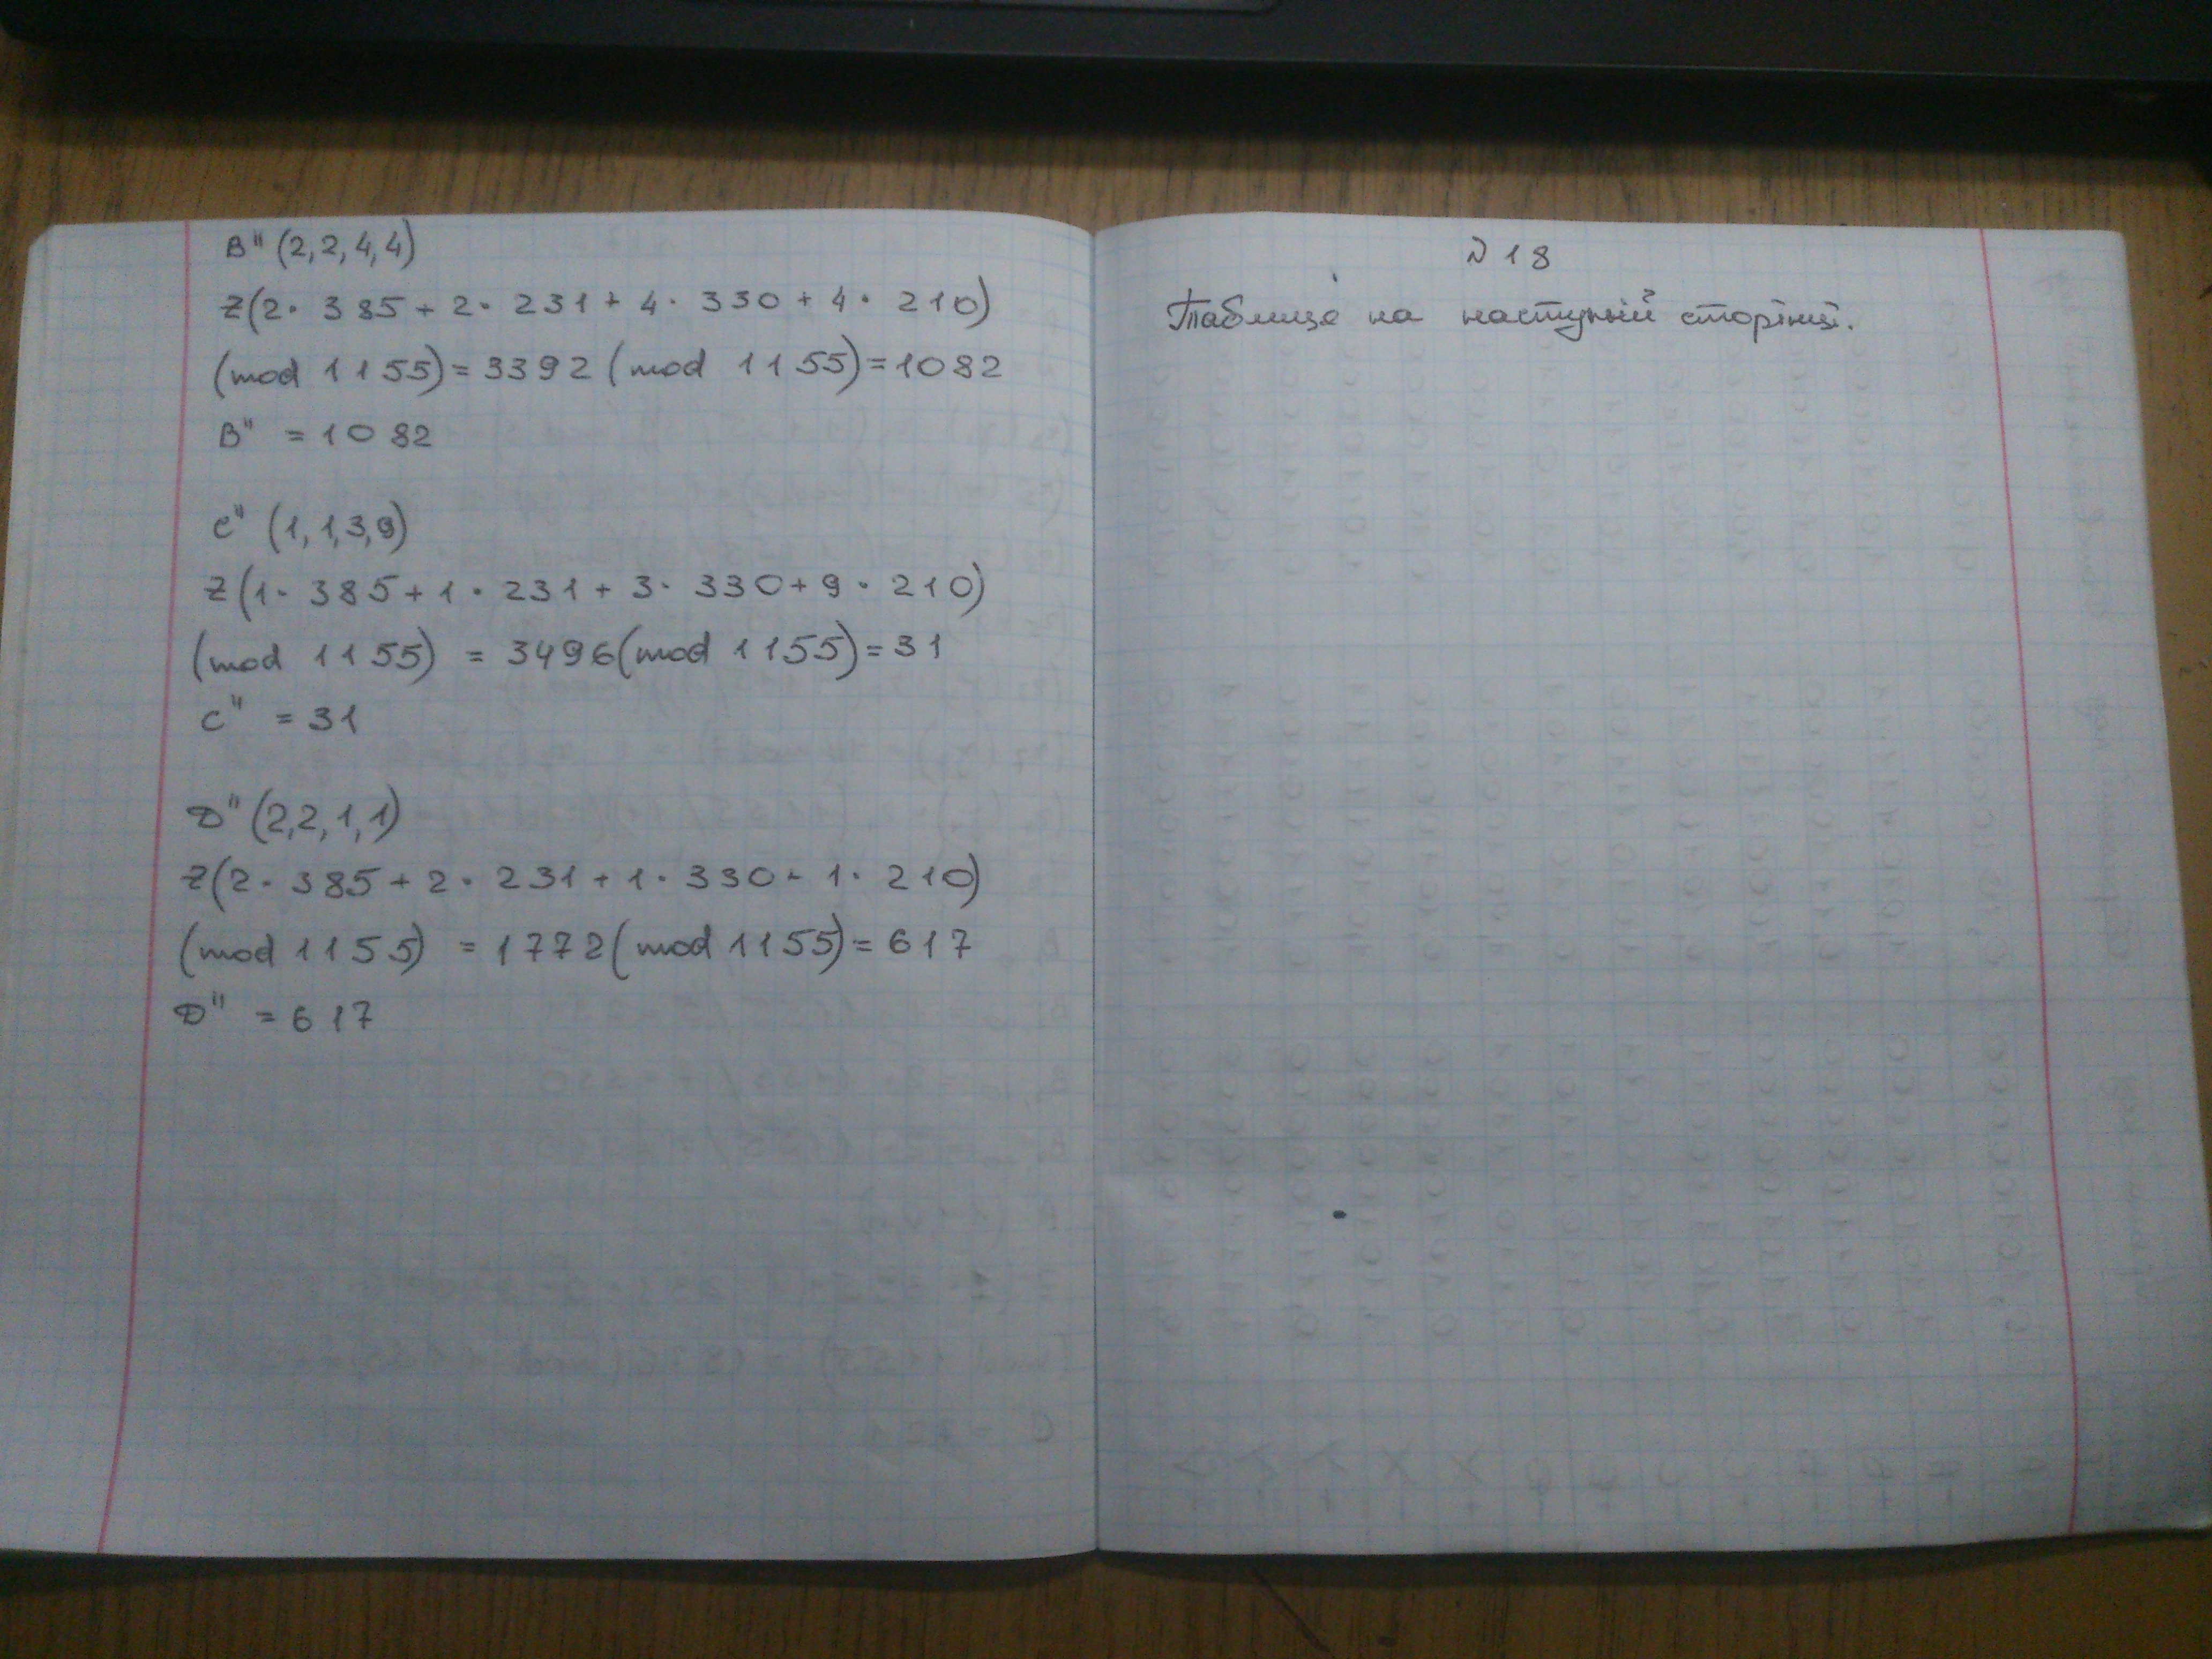 В" (2,2,4,4)
Z(2· 385 + 2· 231 + 4· 330 + 4· 210)
(mod 1155)=3392 (mod 1155)=1082
В" = 1082
С" (1,1,3,9)
Z(1· 385+1· 231+ 3· 330+9· 210)
(mod 1155) = 3496(mod 1155)=31
С" = 31
D" (2,2,1,1)
Z(2· 385+2· 231+1· 330+ 1· 210)
(mod 1155) = 1772(mod 1155)= 617
D" = 617
№18
Таблиця на наступній сторінці.